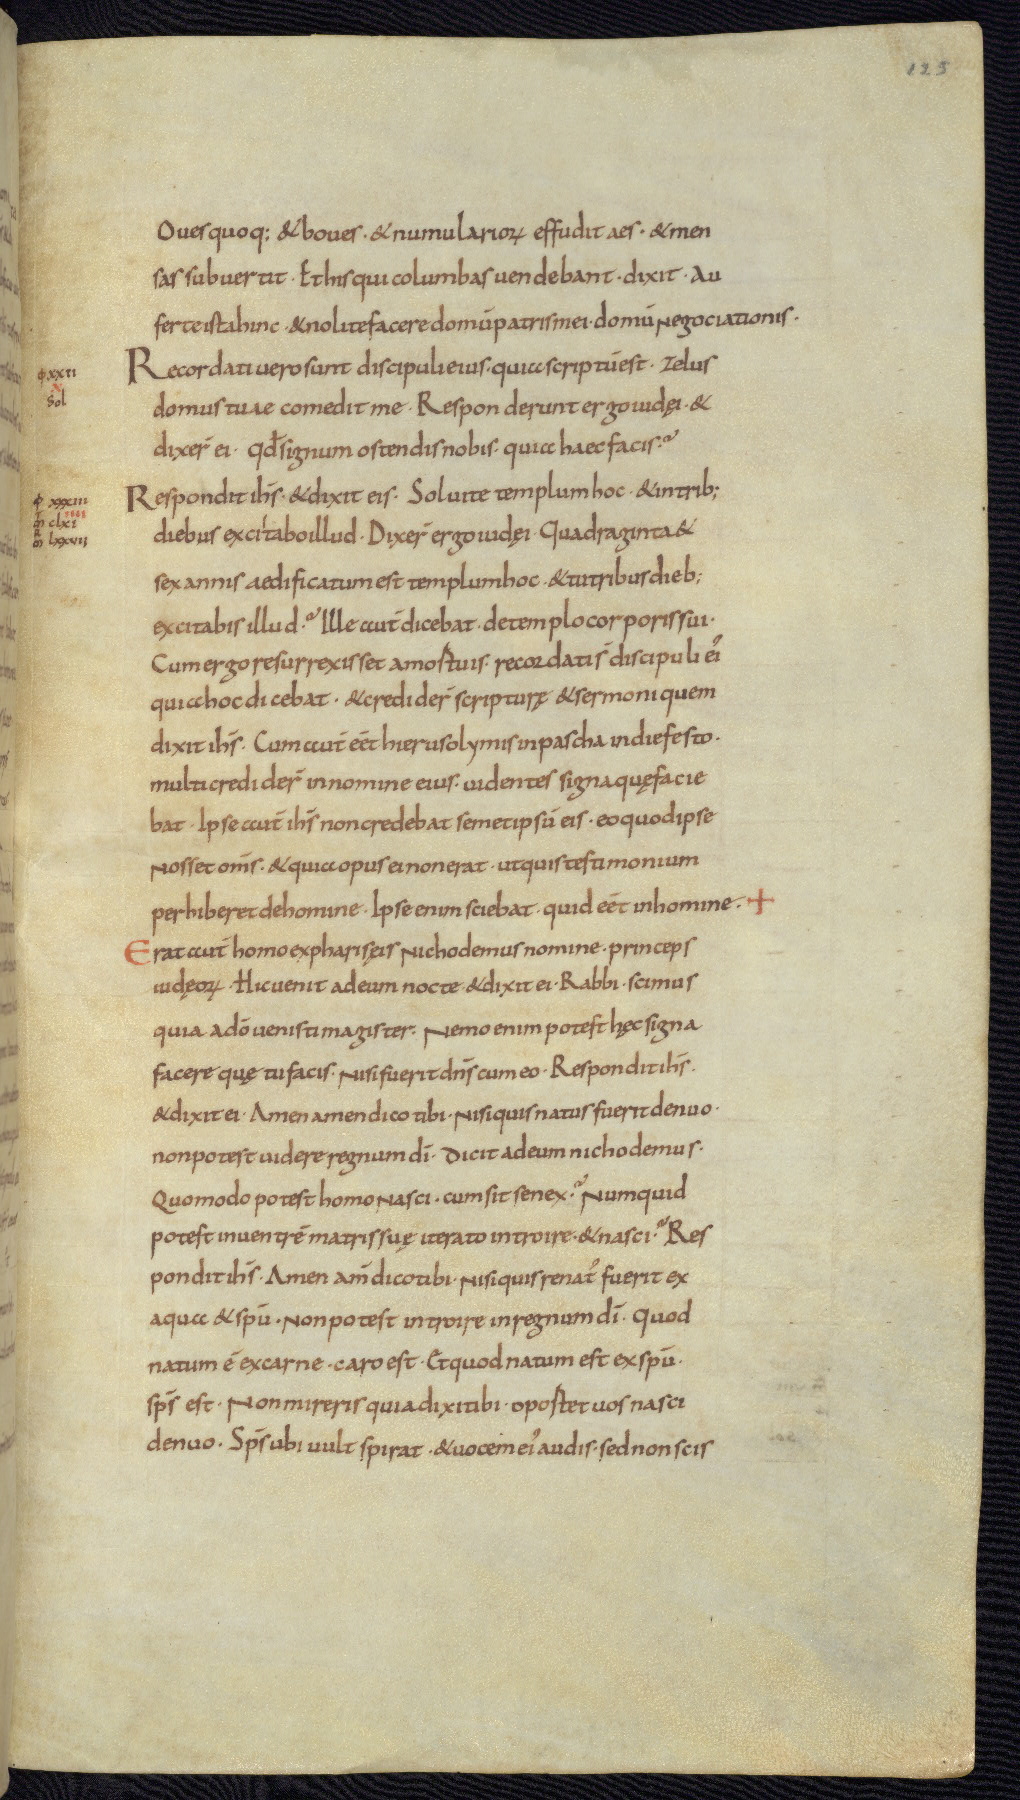 125
Oues quoq; & boues · & numularioꝝ effudit aes · & men
sas subuertit · Et his qui columbas uendebant · dixit · Au
ferte ista hinc · & nolite facere domū patris mei · domū negociationis ·
φ xxii
Recordati uero sunt discipuli eius · quia scriptū est · Zelus
x
Sol
domus tuae comedit me · Responderunt ergo iudęi · &
dixer̄ ei · qđ signum ostendis nobis · quia haec facis ?
φ xxxiii
Respondit ih̄s · & dixit eis · Soluite templum hoc · & in trib;
m̄ clxi
m̄ lxxvii
diebus excitabo illud · Dixer̄ ergo iudęi · Quadraginta &
sex annis aedificatum est templum hoc · & tu tribus dieb;
excitabis illud ? Ille aut̄ dicebat · de templo corporis sui ·
Cum ergo resurrexisset a mortuis · recordati s̄ discipuli ei᾽
quia hoc dicebat · & credider̄ scripturę & sermoni quem
dixit ih̄s · Cum aut̄ eēt hierusolymis in pascha in die festo ·
multi credider̄ in nomine eius · uidentes signa quę facie
bat · Ipse aut̄ ih̄s non credebat semetipsū eis · eo quod ipse
nosset om̄s · & quia opus ei non erat · ut quis testimonium
perhiberet de homine · Ipse enim sciebat · quid eēt in homine · +
Erat aut̄ homo ex pharisęis nichodemus nomine · princeps
iudęoꝝ · Hic uenit ad eum nocte · & dixit ei · Rabbi · scimus
quia a dō uenisti magister · Nemo enim potest hęc signa
facere quę tu facis · nisi fuerit dn̄s cum eo · Respondit ih̄s ·
& dixit ei · Amen amen dico tibi · nisi quis natus fuerit denuo ·
non potest uidere regnum dī · Dicit ad eum nichodemus ·
Quomodo potest homo nasci · cum sit senex ? Numquid
potest in uentrē matris suę iterato introire · & nasci ? Res
pondit ih̄s · Amen am̄ dico tibi · nisi quis renat᾽ fuerit ex
aqua & spū · non potest introire in regnum dī · Quod
natum ē ex carne · caro est · Et quod natum est ex spū ·
sps̄ est · Non mireris quia dixi tibi · oportet uos nasci
denuo · Sps̄ ubi uult spirat · & uocem ei᾽ audis · sed non scis